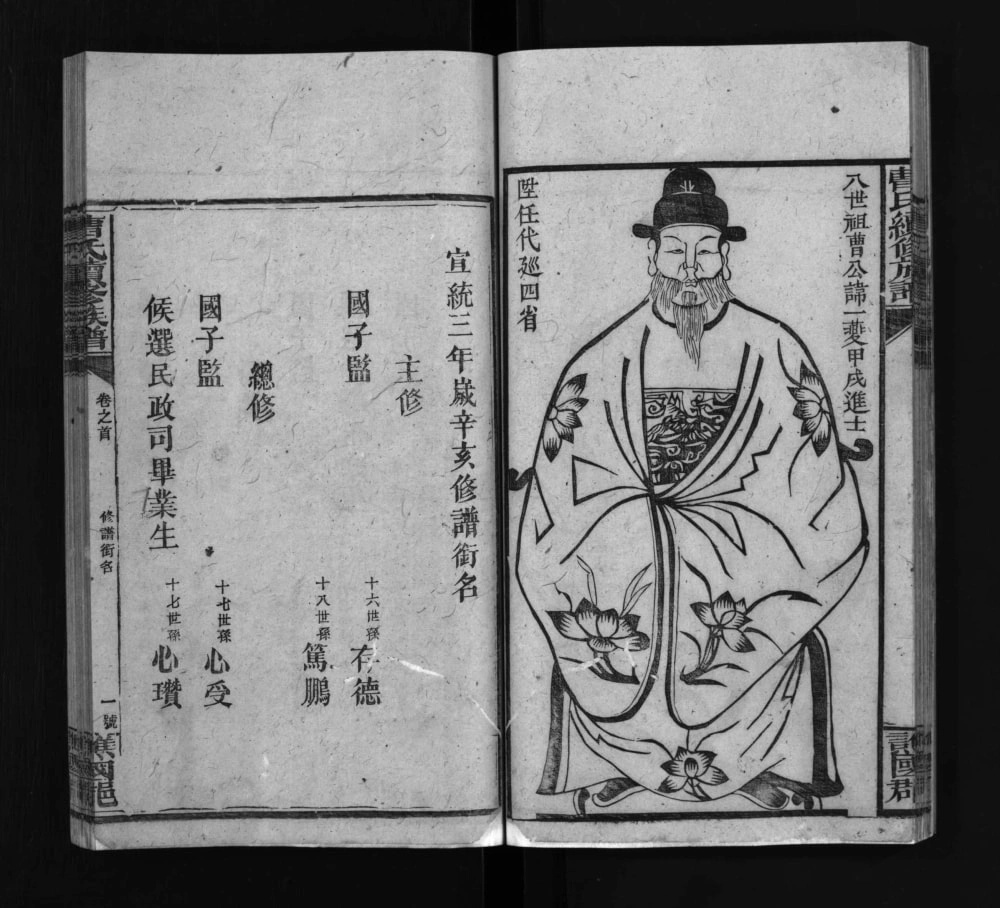 曹氏續修族譜
八世祖曹公諱一夔甲戌進士
陞任代廵四省
譙國郡
宣統三年嵗辛亥修譜銜名
主修
國子監
十六世孫 存德
十八世孫 篤鵬
總修
國子監
十七世孫 心受
候選民政司畢業生
十七世孫 心瓚
曹氏續修族譜
卷之首
修譜銜名
一號
譙國郡